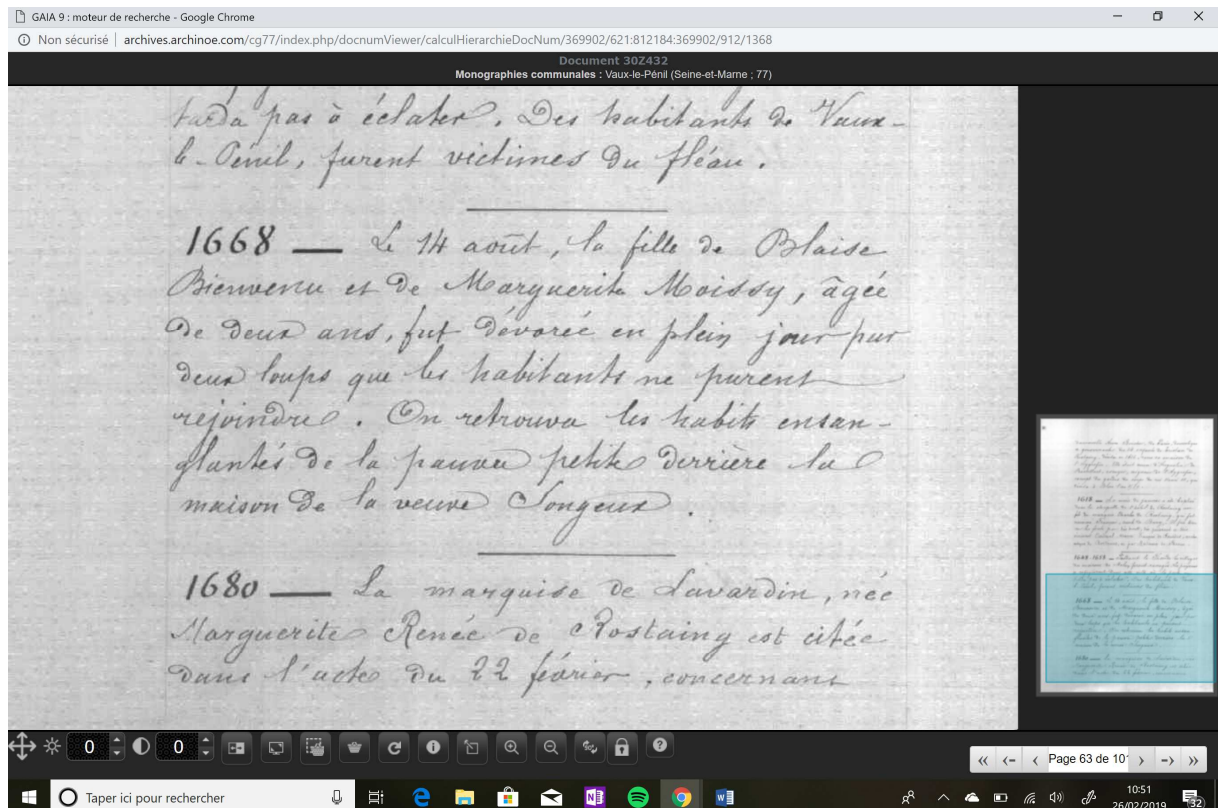 GAIA 9 : moteur de recherche - Google Chrome
Non sécurisé | archives.archinoe.com/cg77/index.php/docnumViewer/calculHierarchieDocNum/369902/621:812184:369902/912/1368
Document 30Z432
Monographies communales : Vaux-le-Pénil (Seine-et-Marne ; 77)
tarda pas à éclater. Des habitants de Vaux-
le-Pénil, furent victimes du fléau.
1668 — Le 14 août, la fille de Blaise
Bienvenu et de Marguerite Moissy, âgée
de deux ans, fut dévorée en plein jour par
deux loups que les habitants ne purent
rejoindre. On retrouva les habits ensan-
glantés de la pauvre petite derrière la
maison de la veuve Songeux.
1680 — La marquise de Lavardin, née
Marguerite Renée de Rostaing est citée
dans l'acte du 22 février, concernant
0
0
Page 63 de 10
Taper ici pour rechercher
10:51
26/02/2019
32